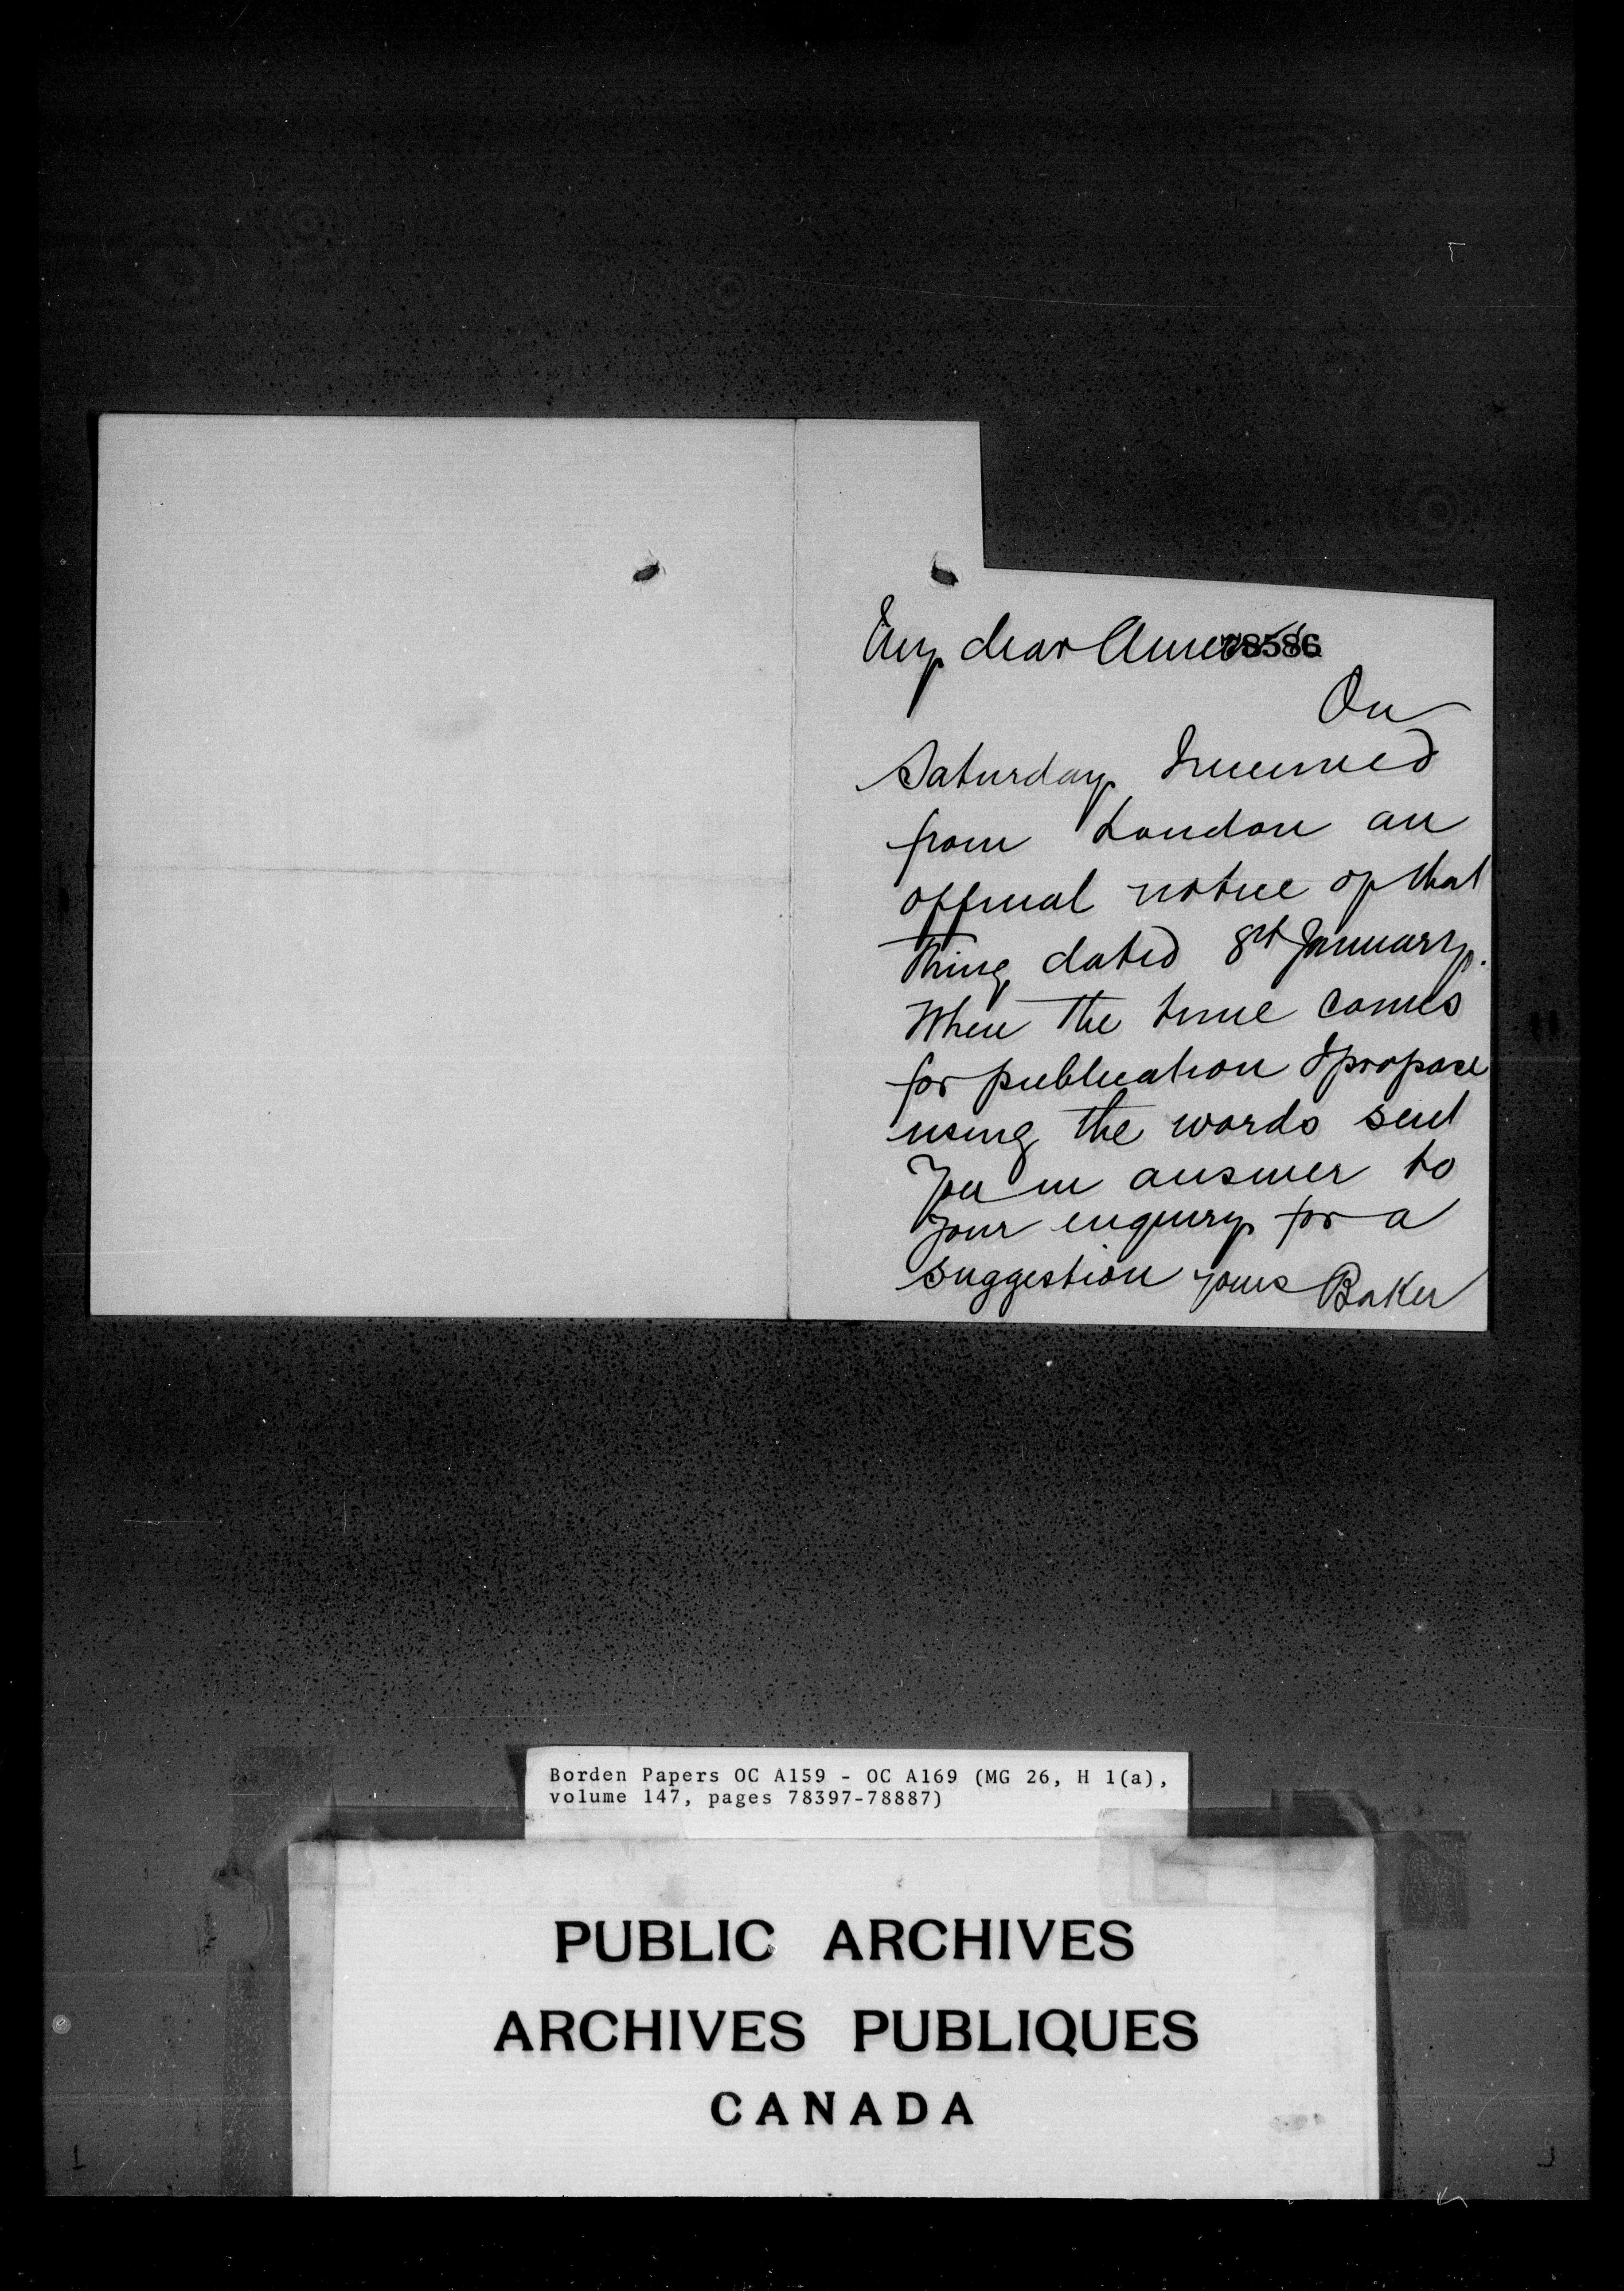 My dear
78586
On
Saturday I received
from London an
official notice of that
thing, dated 8th January.
When the time comes
for publication I propose
using the words sent
you in answer to
your enquiry for a
suggestion yours Baker
Borden Papers OC A159 - OC A169 (MG 26, H 1(a),
volume 147, pages 78397-78887)
PUBLIC ARCHIVES
ARCHIVES PUBLIQUES
CANADA